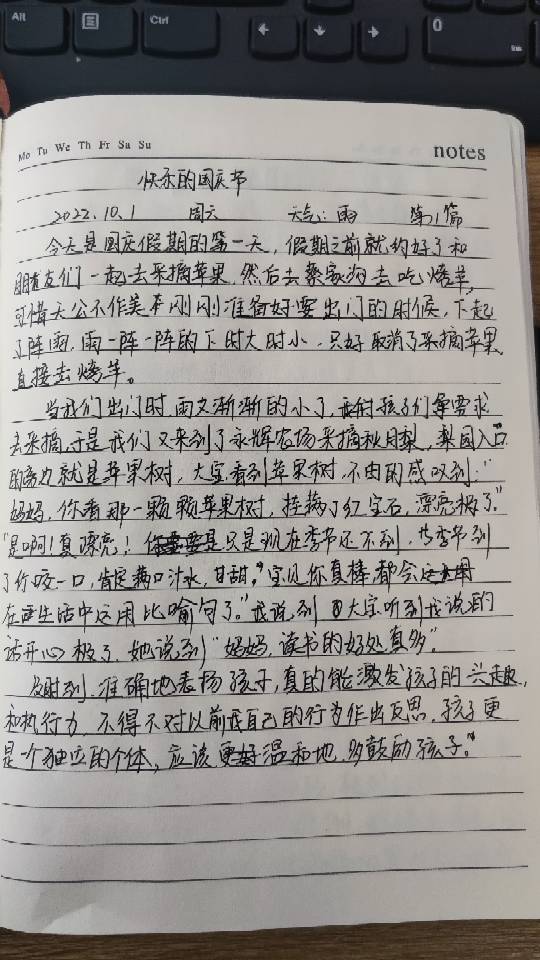 Alt
Ctrl
0
Ins
Mo Tu We Th Fr Sa Su
notes
快乐的国庆节
2022.10.1 周六 天气:雨 第1篇
今天是国庆假期的第一天,假期之前就约好了和
朋友们一起去采摘苹果,然后去蔡家沟去吃烤羊,
可惜天公不作美,刚刚准备好要出门的时候,下起
了阵雨,雨一阵一阵的下时大时小,只好取消了采摘苹果,
直接去烤羊。
当我们出门时,雨又渐渐的小了,孩子们要求
去采摘,于是我们又来到了永辉农场采摘秋月梨,梨园入口
的旁边就是苹果树,大宝看到苹果树,不由的感叹到:"
妈妈,你看那一颗颗苹果树,挂满了红宝石,漂亮极了。"
"是啊!真漂亮!只是现在季节还不到,等季节到
了你咬一口,肯定满口汁水,甘甜。""宝贝你真棒,都会
在生活中运用比喻句了。"我说到 大宝听到我说的
话开心极了,她说到"妈妈,读书的好处真多"。
及时到、准确地表扬孩子,真的能激发孩子的兴趣,
和执行力,不得不对以前我自己的行为作出反思,孩子更
是一个独立的个体,应该更好温和地,多鼓励孩子。"